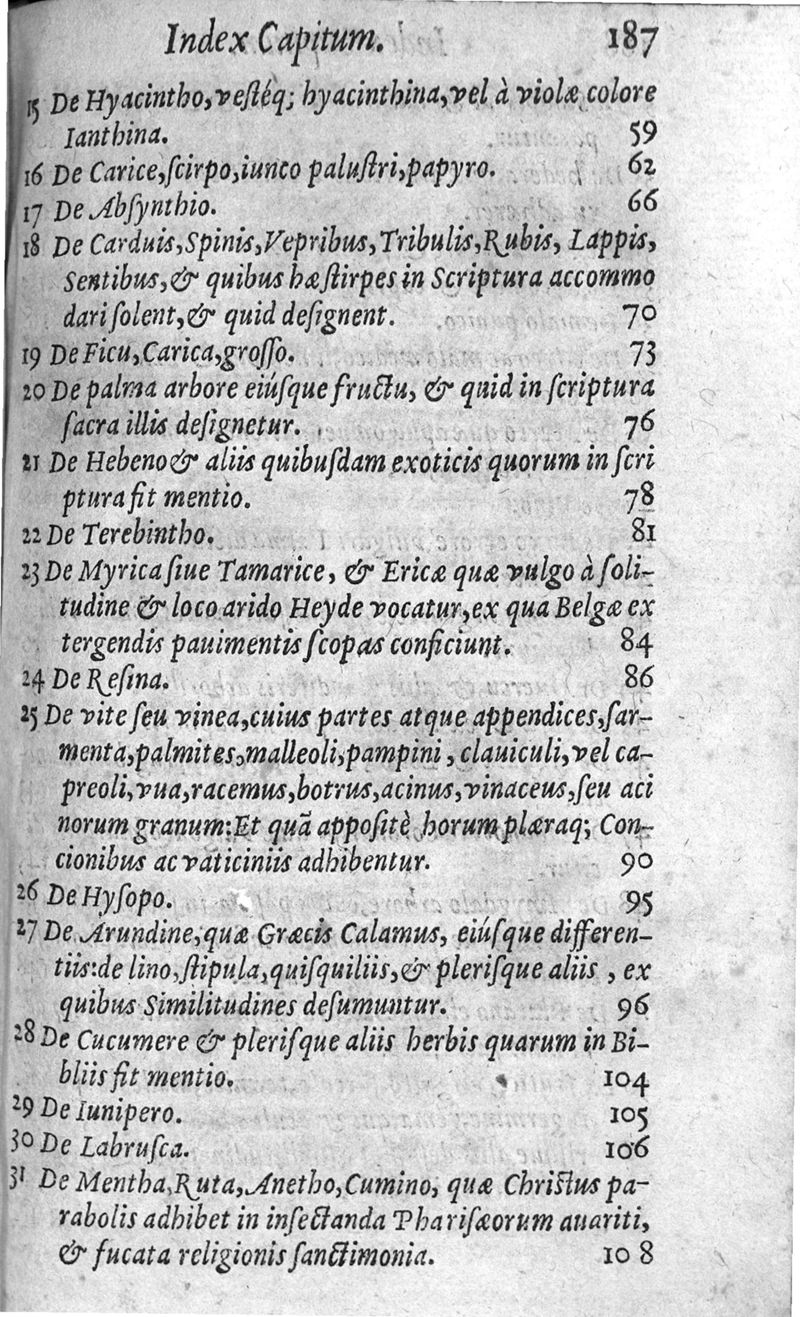 Index Capitum. 187
15 De Hyacintho, veſtéq; hyacinthina, vel à violæ colore
Ianthina. 59
16 De Carice, ſcirpo, iunco paluſtri, papyro. 62
17 De Abſynthio. 66
18 De Carduis, Spinis, Vepribus, Tribulis, Rubis, Lappis,
Sentibus, & quibus hæ ſtirpes in Scriptura accommo
dari ſolent, & quid deſignent. 70
19 De Ficu, Carica, groſſo. 73
20 De palma arbore eiúſque fructu, & quid in ſcriptura
ſacra illis deſignetur. 76
21 De Hebeno & aliis quibuſdam exoticis quorum in ſcri
ptura fit mentio. 78
22 De Terebintho. 81
23 De Myrica ſiue Tamarice, & Ericæ quæ vulgo à ſoli-
tudine & loco arido Heyde vocatur, ex qua Belgæ ex
tergendis pauimentis ſcopas conficiunt. 84
24 De Reſina. 86
25 De vite ſeu vinea, cuius partes atque appendices, ſar-
menta, palmites, malleoli, pampini, clauiculi, vel ca-
preoli, vua, racemus, botrus, acinus, vinaceus, ſeu aci
norum granum: Et quã appoſitè horum plæraq; Con-
cionibus ac vaticiniis adhibentur. 90
26 De Hyſopo. 95
27 De Arundine, quæ Græcis Calamus, eiúſque differen-
tiis: de lino, ſtipula, quiſquiliis, & pleriſque aliis, ex
quibus Similitudines deſumuntur. 96
28 De Cucumere & pleriſque aliis herbis quarum in Bi-
bliis fit mentio. 104
29 De Iunipero. 105
30 De Labruſca. 106
31 De Mentha, Ruta, Anetho, Cumino, quæ Chriſtus pa-
rabolis adhibet in inſectanda Phariſæorum auariti,
& fucata religionis ſanctimonia. 108